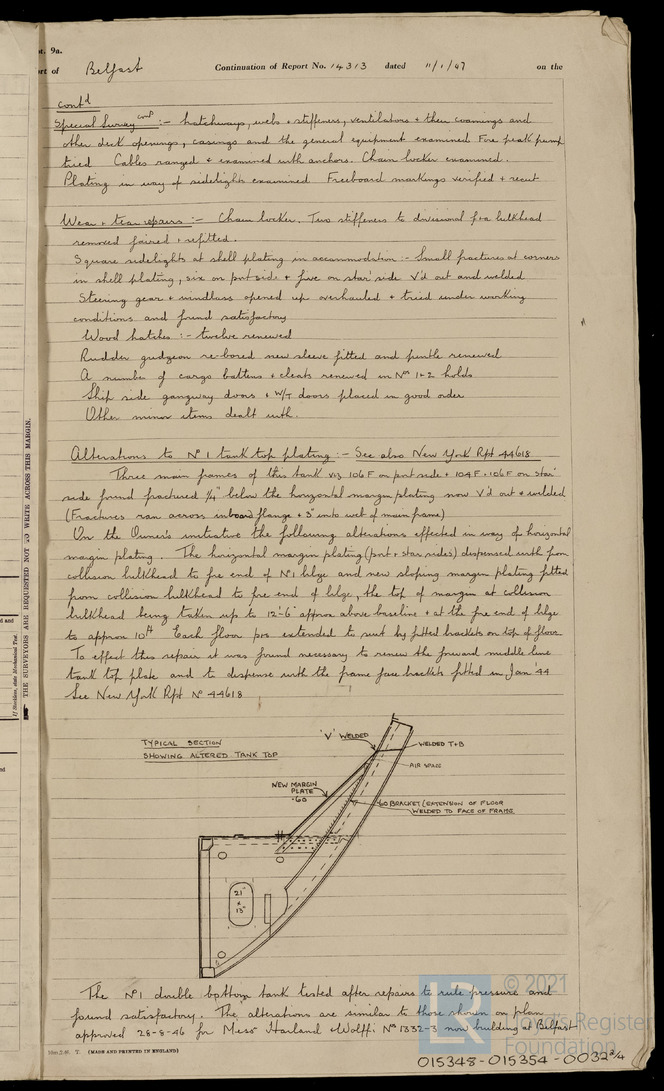 t. 9a.
rt of Belfast Continuation of Report No. 14313 dated 11/1/47 on the
cont'd
Special Survey cont :- hatchways, webs + stiffeners, ventilators + their coamings and
other deck openings, casings and the general equipment examined Fore peak pump
tried Cables ranged + examined with anchors. Chain locker examined.
Plating in way of sidelights examined Freeboard markings verified + recut
Wear + tear repairs :- Chain locker. Two stiffeners to divisional f+a bulkhead
removed faired + refitted.
Square sidelights at shell plating in accommodation :- Small fractures at corners
in shell plating, six on port side + five on star' side V'd out and welded
Steering gear + windlass opened up overhauled + tried under working
conditions and found satisfactory
Wood hatches :- twelve renewed
Rudder gudgeon re-bored new sleeve fitted and pintle renewed
A number of cargo battens + cleats renewed in Nos 1+2 holds
Ship side gangway doors + W/T doors placed in good order
Other minor items dealt with.
Alterations to No 1 tank top plating :- See also New York Rpt 44618
Three main frames of this tank viz 106F on port side + 104F + 106F on star'
side found fractured 1/4" below the horizontal margin plating now V'd out + welded
(Fractures ran across inboard flange + 3" into web of main frame)
On the Owner's initiative the following alterations effected in way of horizontal
margin plating. The horizontal margin plating (port + star. sides) dispensed with from
collision bulkhead to fre end of No 1 bilge and new sloping margin plating fitted
from collision bulkhead to fre end of bilge, the top of margin at collision
bulkhead being taken up to 12'-6" approx above baseline + at the fre end of bilge
to approx 10ft Each floor pos. extended to suit by fitted brackets on top of floor
To effect this repair it was found necessary to renew the forward middle line
tank top plate and to dispense with the frame face brackets fitted in Jan '44
See New York Rpt No 44618
TYPICAL SECTION
SHOWING ALTERED TANK TOP
'V' WELDED
WELDED T+B
AIR SPACE
NEW MARGIN
PLATE
·60
·60 BRACKET (EXTENSION OF FLOOR
WELDED TO FACE OF FRAME
21"
x
15"
The No 1 double bottom tank tested after repairs to rule pressure and
found satisfactory. The alterations are similar to those shown on plan
approved 28-8-46 for Messrs Harland Wolff: No 1332-3 now building at Belfast
(MADE AND PRINTED IN ENGLAND)
015348-015354-0032 2/4
THE SURVEYORS ARE REQUESTED NOT TO WRITE ACROSS THIS MARGIN.
© 2021
LR
Lloyd's Register
Foundation